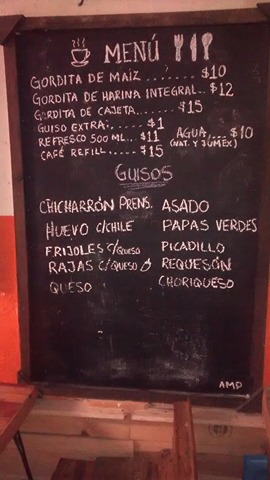 MENÚ
GORDITA DE MAÍZ ....... $10
GORDITA DE HARINA INTEGRAL.. $12
GORDITA DE CAJETA....... $15
GUISO EXTRA: ..... $1
REFRESCO 500 ML.. $11
CAFÉ REFILL... $15
AGUA.... $10
(NAT. Y JUMEX)
GUISOS
CHICHARRÓN PRENS. ASADO
HUEVO C/CHILE PAPAS VERDES
FRIJOLES C/QUESO PICADILLO
RAJAS C/QUESO REQUESÓN
QUESO CHORIQUESO
AMP